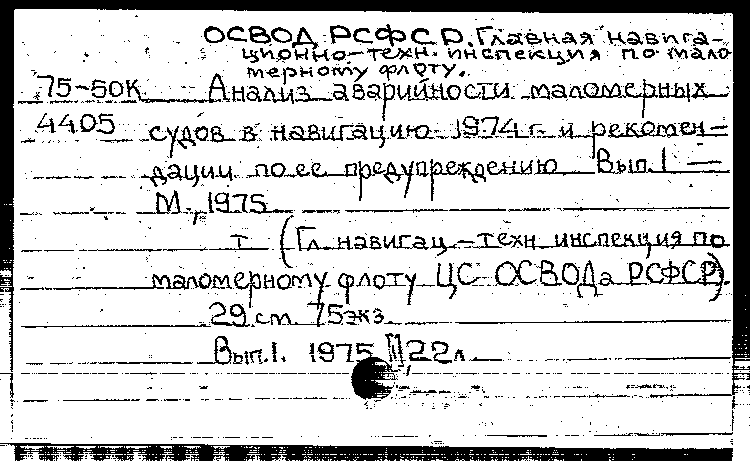 ОСВОД РСФСР. Главная навига-
ционно-техн. инспекция по мало
мерному флоту.
75-50К Анализ аварийности маломерных
4405 судов в навигацию 1974 г. и рекомен-
дации по ее предупреждению Вып. 1 —
М., 1975
т (Гл. навигац.-техн. инспекция по
маломерному флоту ЦС ОСВОДа РСФСР).
29 см. 75 экз.
Вып. 1. 1975 22 л